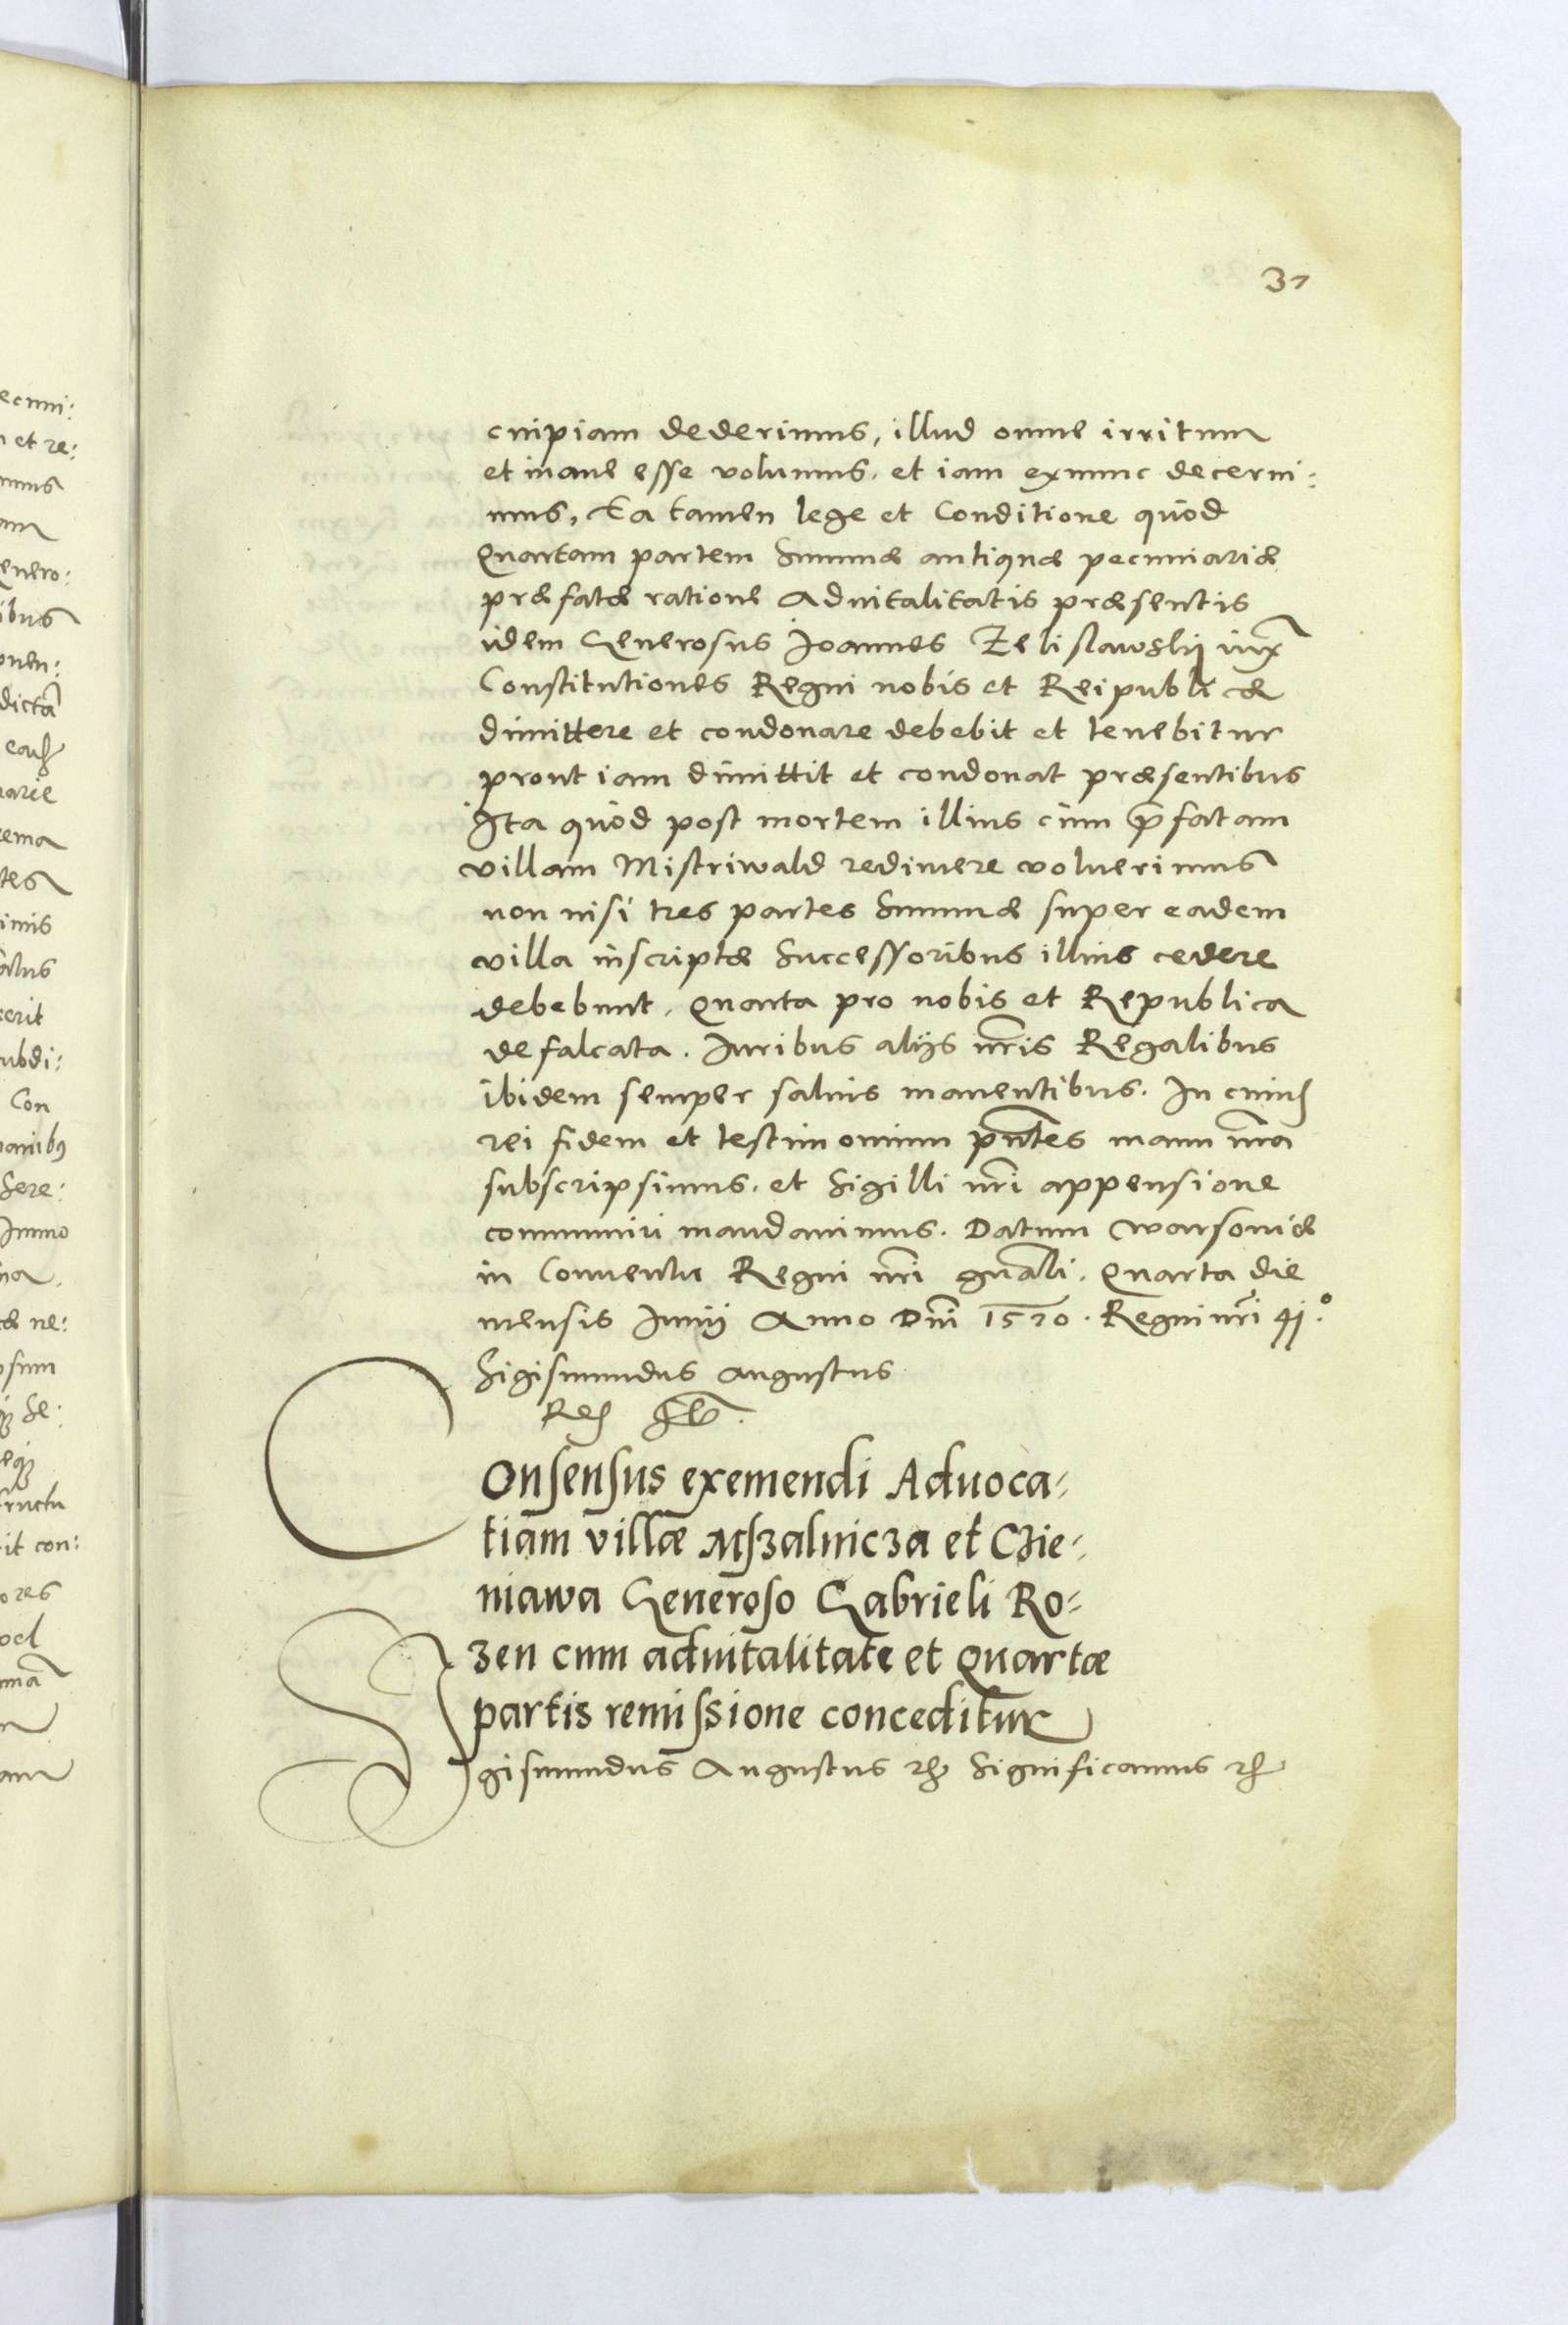 37
cuipiam dederimus, illud omne irritum
et inane esse volumus. et iam exnunc decerni:
mus, Ea tamen lege et Conditione quod
Quartam partem Summæ antiquæ pecuniariæ
præfatæ ratione Aduitalitatis præsentis
idem Generosus Joannes Zelislawskij iuxa
Constitutiones Regni nobis et Reipublicæ
dimittere et condonare debebit et tenebitur
prout iam dimittit et condonat præsentibus
Ita quòd post mortem illius cùm pfatam
villam Mistriwald redimere voluerimus
non nisi tres partes Summæ super eadem
villa inscriptæ Successoribus illius cedere
debebunt, Quarta pro nobis et Republica
defalcata. Juribus alijs nris Regalibus
ibidem semper saluis manentibus. In cuius
rei fidem et testimonium pntes manu nra
subscripsimus. et Sigilli nri appensione
communiri mandauimus. Datum Warsouiæ
in Conuentu Regni nri gnali. Quarta die
mensis Junij Anno Dni 1570. Regni nri 41°.
Sigismundus Augustus
Rex
Consensus exemendi Aduoca-
tiam villæ Mszalnicza et Czie-
niawa Generoso Gabrieli Ro-
zen cum aduitalitate et Quartæ
partis remissione conceditur
Sigismundus Augustus etc Significamus etc
ecuni:
et re:
enero:
ibus
onen:
dictā
arie
tes
imis
atus
erit
ubdi:
Con
Sere:
Immo
æ ne:
osum
Se:
fructu
it con:
ores